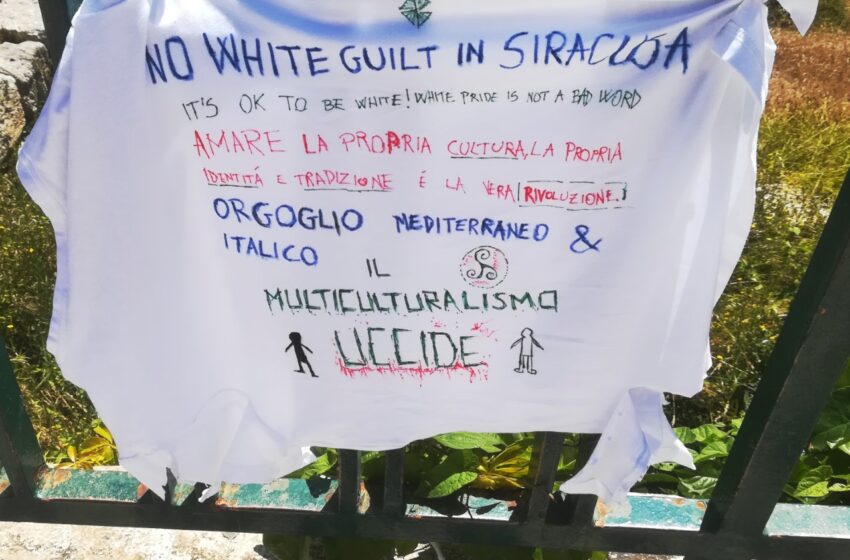 NO WHITE GUILT IN SIRACUSA
IT'S OK TO BE WHITE! WHITE PRIDE IS NOT A BAD WORD
AMARE LA PROPRIA CULTURA, LA PROPRIA
IDENTITÁ E TRADIZIONE É LA VERA RIVOLUZIONE!
ORGOGLIO MEDITERRANEO &
ITALICO
IL
MULTICULTURALISMO
UCCIDE